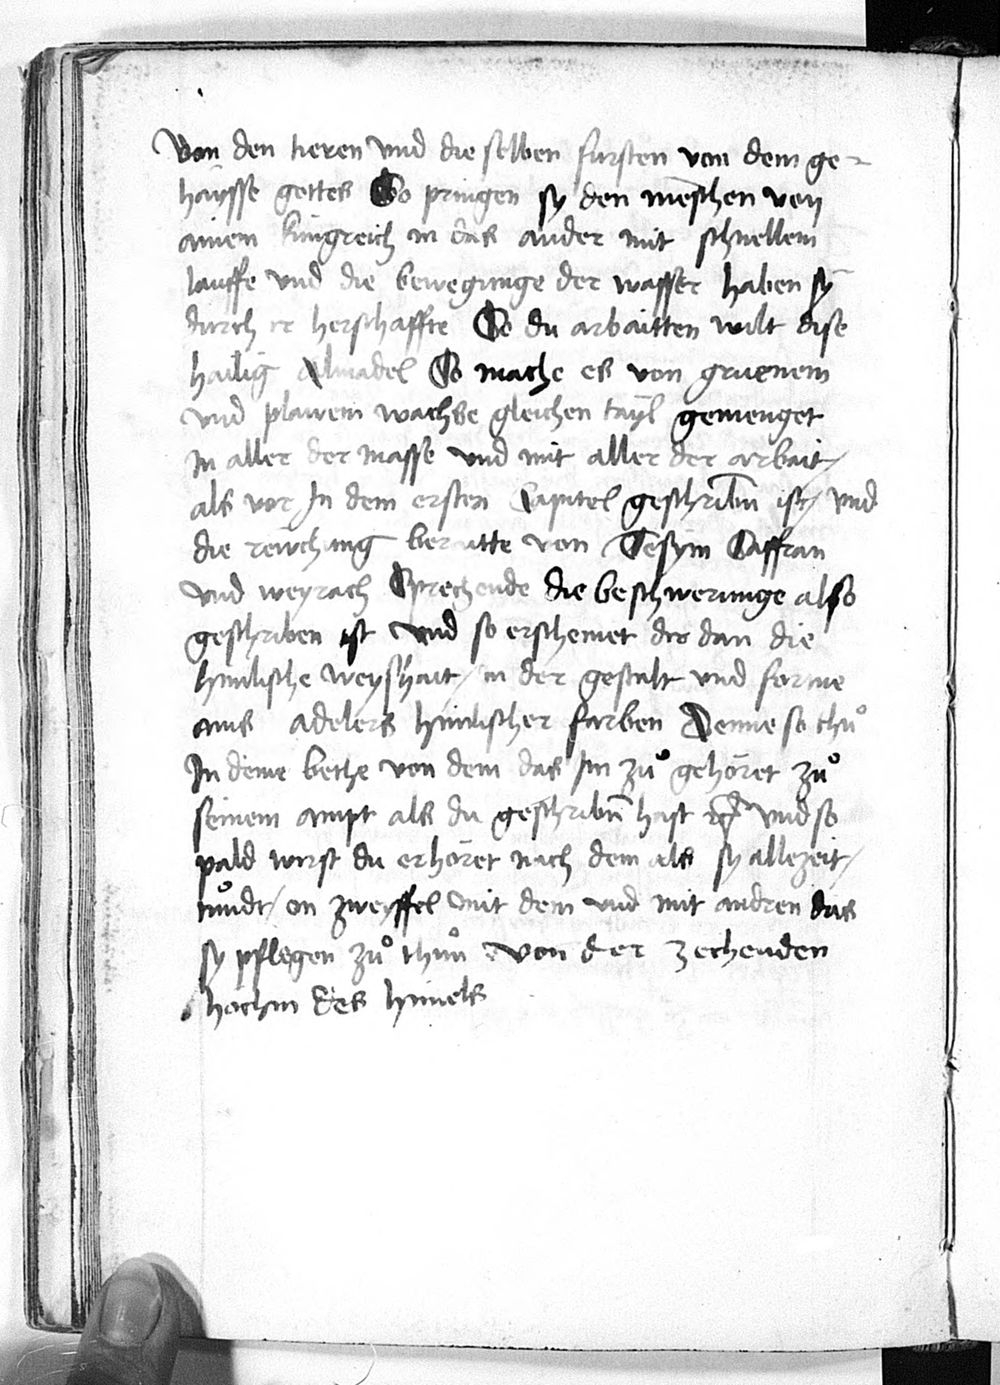 Von den tieren vnd die selben fursten von dem ge-
haysse gottes So pringen sy den menschen von
ainem kungreich in das ander mit schnellem
lauffe vnd die bewegunge der wasser haben sy
durch ir herschaffte So du arbaitten wilt dise
hailig Almadel So mache es von gruenem
vnd plawem wachse gleichen tayl gemenget
In aller der masse vnd mit aller der arbait /
als vor In dem ersten Capitel geschribn ist / vnd
die reuchung beraitte von Sesym Saffran
vnd weyrach Sprechende die beschwerunge also
geschriben ist vnd so erscheinet dir dan die
himlische weyshait / in der gestalt vnd forme
ains adelers himlischer farben Denne so thuͦ
In deine bethe von dem das Im zuͦ gehöret zuͦ
seinem ampt als du geschribn hast vnd so
pald wirst du erhöret nach dem als sy allezeit /
on zweyffel mit dem vnd mit andren das
sy pflegen zuͦ thuͦn von der zechenden
hochin des himels